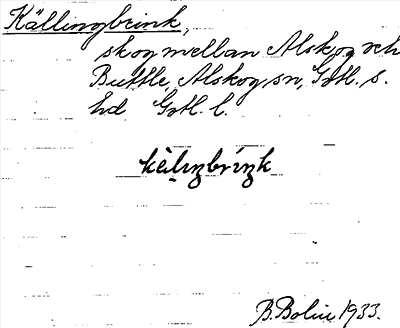 Källingbrink,
skog mellan Alskog och
Buttle, Alskog sn, Gotl. s.
hd Gotl. l.
kèlıŋbríŋk
B. Bolin 1933.